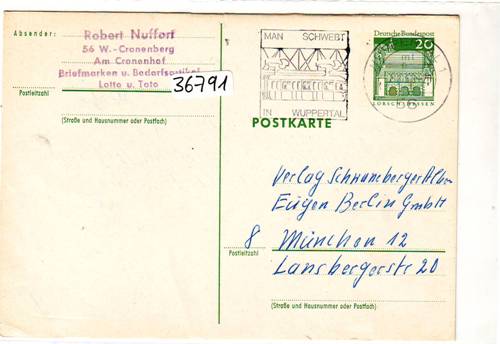 Absender:
Robert Nuffort
56 W.-Cronenberg
Am Cronenhof
Briefmarken u. Bedarfsartikel
Lotto u. Toto
36791
Postleitzahl
(Straße und Hausnummer oder Postfach)
MAN SCHWEBT
IN WUPPERTAL
Deutsche Bundespost
20
LORSCH/HESSEN
POSTKARTE
Verlag Schwaneberger Album
Eugen Berlin GmbH
8 München 12
Postleitzahl
Landsbergerstr 20
(Straße und Hausnummer oder Postfach)